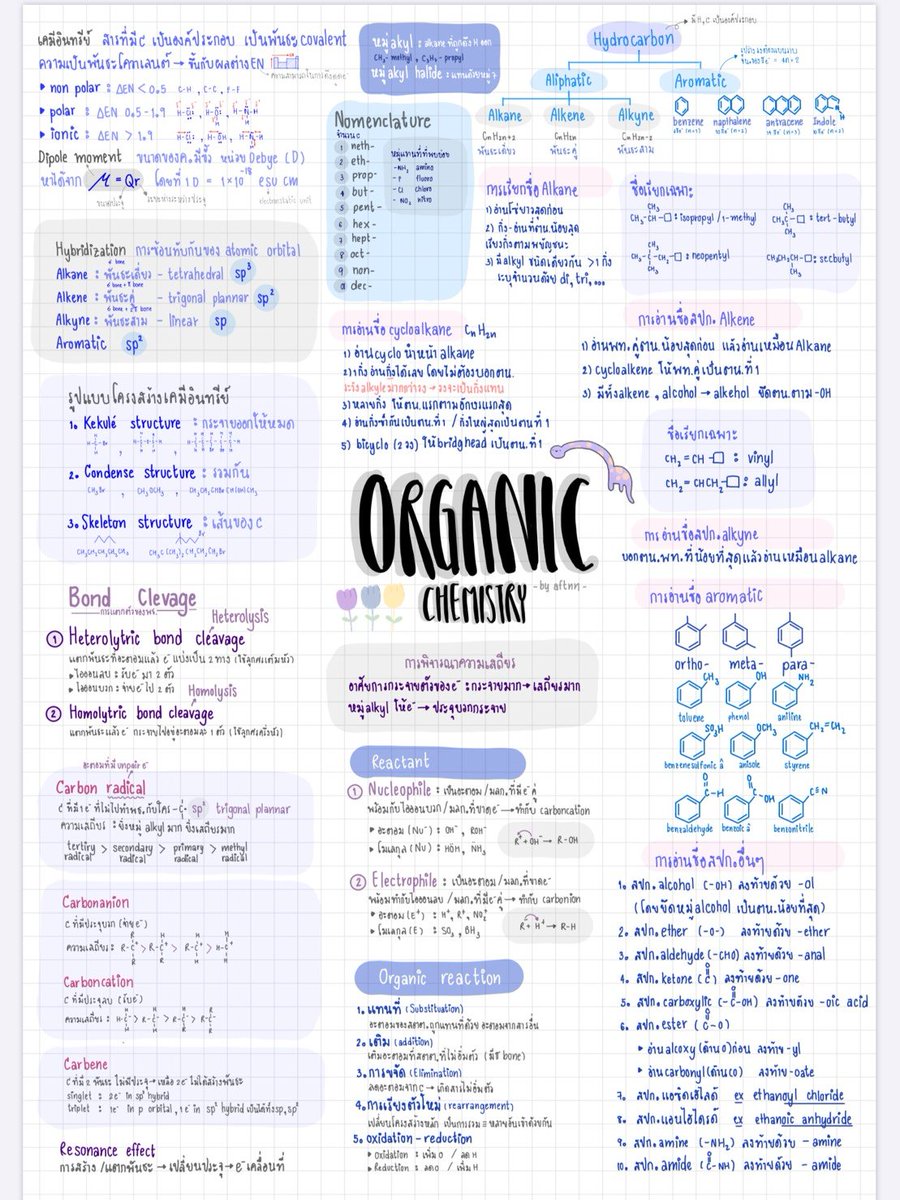 เคมีอินทรีย์ สารที่มี C เป็นองค์ประกอบ เป็นพันธะ covalent
ความเป็นพันธะโคเวเลนต์ → ขึ้นกับผลต่าง EN
▸ non polar : ΔEN < 0.5 C-H , C-C , F-F
▸ polar : ΔEN 0.5-1.9
▸ ionic : ΔEN > 1.9
Dipole moment ขนาดของค.มีขั้ว หน่วย Debye (D)
หาได้จาก μ = Qr โดยที่ 1 D = 1×10⁻¹⁸ esu cm
electrostatic unit
Hybridization การซ้อนทับกันของ atomic orbital
Alkane : พันธะเดี่ยว - tetrahedral sp³
Alkene : พันธะคู่ - trigonal plannar sp²
Alkyne : พันธะสาม - linear sp
Aromatic sp²
รูปแบบโครงสร้างเคมีอินทรีย์
1. Kekulé structure : กระจายออกให้หมด
2. Condense structure : รวมกัน
CH₃Br , CH₃OCH₃ ,
3. Skeleton structure : เส้นของ C
CH₃CH₂CH₂CH₂CH₃
Bond Clevage
การแตกตัวของพธ.
Heterolysis
① Heterolytric bond cleavage
Homolysis
② Homolytric bond cleavage
อะตอมที่มี unpair e⁻
Carbon radical
sp² trigonal plannar
ความเสถียร : ยิ่งหมู่ alkyl มาก ยิ่งเสถียรมาก
tertiry radical > secondary radical > primary radical > methyl radical
Carbonanion
C ที่มีประจุบวก (จ่าย e⁻)
ความเสถียร :
Carboncation
C ที่มีประจุลบ (รับ e⁻)
ความเสถียร :
Carbene
C ที่มี 2 พันธะ ไม่มีประจุ → เหลือ 2e⁻ ไม่ได้สร้างพันธะ
singlet : 2e⁻ in sp² hybrid
triplet : 1e⁻ in p orbital , 1e⁻ in sp² hybrid เป็นได้ทั้ง sp, sp²
Resonance effect
การสร้าง/แตกพันธะ → เปลี่ยนประจุ → e⁻ เคลื่อนที่
หมู่ akyl : alkane ที่ถูกดึง H ออก
CH₃- methyl , C₃H₇- propyl
หมู่ akyl halide : แทนด้วยหมู่ 7
Nomenclature
จำนวน C
1 meth-
2 eth-
3 prop-
4 but-
5 pent-
6 hex-
7 hept-
8 oct-
9 non-
10 dec-
หมู่แทนที่ที่พบบ่อย
-NH₂ amino
-F fluoro
-Cl chloro
-NO₂ nitro
มี H, C เป็นองค์ประกอบ
Hydrocarbon
Aliphatic
Aromatic
Alkane Alkene Alkyne
CnH2n+2 CnH2n CnH2n-2
พันธะเดี่ยว พันธะคู่ พันธะสาม
benzene napthalene antracene Indole
การเรียกชื่อ Alkane
1) อ่านโซ่ยาวสุดก่อน
2) กิ่ง-อ่านที่ตน.น้อยสุด
เรียงกิ่งตามพยัญชนะ
3) มี alkyl ชนิดเดียวกัน > 1 กิ่ง
ระบุจำนวนด้วย di, tri, ...
ชื่อเรียกเฉพาะ
: isopropyl / 1-methyl
: tert-butyl
: neopentyl
: secbutyl
การอ่านชื่อ cycloalkane CnH2n
1) อ่าน cyclo นำหน้า alkane
2) 1 กิ่ง อ่านกิ่งได้เลย โดยไม่ต้องบอกตน.
3) หลายกิ่ง ให้ตน.แรกตามอักษรแรกสุด
4) อ่านกิ่งซ้ำกันเป็นตน.ที่ 1 / กิ่งใหญ่สุดเป็นตน.ที่ 1
5) bicyclo (2 วง) ให้ bridghead เป็นตน.ที่ 1
การอ่านชื่อสปก. Alkene
1) อ่านพท.คู่ตน.น้อยสุดก่อน แล้วอ่านเหมือน Alkane
2) cycloalkene ให้พท.คู่เป็นตน.ที่ 1
3) มีทั้ง alkene , alcohol → alkehol ยึดตน.ตาม -OH
ชื่อเรียกเฉพาะ
CH₂=CH-□ : vinyl
CH₂=CHCH₂-□ : allyl
การอ่านชื่อสปก. alkyne
บอกตน.พท.ที่น้อยที่สุดแล้วอ่านเหมือน alkane
ORGANIC
CHEMISTRY
- by aftnn -
การพิจารณาความเสถียร
อาศัยการกระจายตัวของ e⁻ : กระจายมาก → เสถียรมาก
หมู่ alkyl ให้ e⁻ → ประจุบวกกระจาย
Reactant
① Nucleophile : เป็นอะตอม/มลก.ที่มี e⁻ คู่
พร้อมกับไอออนบวก/มลก.ที่ขาด e⁻ → ทำกับ carboncation
▸ อะตอม (Nu⁻) : OH⁻, ROH⁻
▸ โมเลกุล (Nu) : HÖH, N̈H₃
R⁺ + OH⁻ → R-OH
② Electrophile : เป็นอะตอม/มลก.ที่ขาด e⁻
พร้อมทำกับไอออนลบ/มลก.ที่มี e⁻ คู่ → ทำกับ carbonion
▸ อะตอม (E⁺) : H⁺, R⁺, NO₂⁺
▸ โมเลกุล (E) : SO₃, BH₃
R + H⁺ → R-H
Organic reaction
1. แทนที่ (Substituation)
2. เติม (addition)
3. การขจัด (Elimination)
ลดอะตอมจาก C → เกิดสารไม่อิ่มตัว
4. การเรียงตัวใหม่ (rearrangement)
5. oxidation - reduction
▸ Oxidation : เพิ่ม O / ลด H
▸ Reduction : ลด O / เพิ่ม H
การอ่านชื่อ aromatic
ortho- meta- para-
CH₃ OH NH₂
toluene phenol aniline
SO₃H OCH₃ CH=CH₂
benzenesulfonic a anisole styrene
benzaldehyde benzoic a benzonitrile
การอ่านชื่อสปก.อื่นๆ
1. สปก. alcohol (-OH) ลงท้ายด้วย -ol
(โดยยึดหมู่ alcohol เป็นตน.น้อยที่สุด)
2. สปก. ether (-O-) ลงท้ายด้วย -ether
3. สปก. aldehyde (-CHO) ลงท้ายด้วย -anal
4. สปก. ketone ลงท้ายด้วย -one
5. สปก. carboxylic (-C-OH) ลงท้ายด้วย -oic acid
6. สปก. ester (C-O)
▸ อ่าน alcoxy (ด้าน O) ก่อน ลงท้าย -yl
▸ อ่าน carbonyl (ด้าน C) ลงท้าย -oate
7. สปก. แอซิดเฮไลด์ ex ethanoyl chloride
8. สปก. แอนไฮไดรด์ ex ethanoic anhydride
9. สปก. amine (-NH₂) ลงท้ายด้วย - amine
10. สปก. amide (C-NH) ลงท้ายด้วย - amide